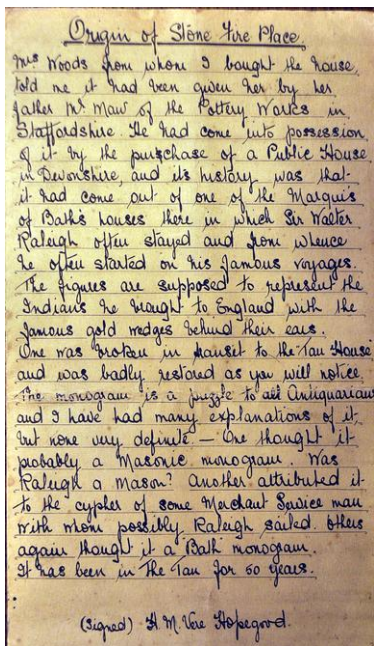 Origin of Stone Fire Place
Mrs Woods from whom I bought the house,
told me it had been given her by her
father Mr. Maw of the Pottery Works in
Staffordshire. He had come into possession
of it by the purchase of a Public House
in Devonshire, and its history was that
it had come out of one of the Marquis
of Bath's houses there in which Sir Walter
Raleigh often stayed and from whence
he often started on his famous voyages.
The figures are supposed to represent the
Indians he brought to England with the
famous gold wedges behind their ears.
One was broken in transit to the Tan House
and was badly restored as you will notice.
The monogram is a puzzle to all Antiquarians
and I have had many explanations of it,
but none very definite — One thought it
probably a Masonic monogram. Was
Raleigh a Mason? Another attributed it
to the cypher of some Merchant Service man
with whom possibly Raleigh sailed. Others
again thought it a Bath monogram.
It has been in The Tan for 50 years.
(Signed) H. M. Vere Hopegood.